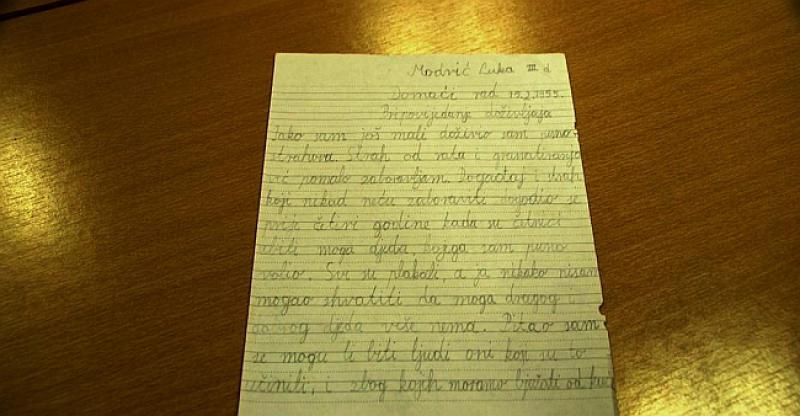 Modrić Luka III d
Domaći rad 15.2.1995.
Pripovijedanje doživljaja
Iako sam još mali doživio sam puno
strahova. Strah od rata i granatiranja
već pomalo zaboravljam. Događaj i strah
koji nikad neću zaboraviti dogodio se
prije četiri godine kada su četnici
ubili moga djeda kojega sam puno
volio. Svi su plakali, a ja nikako nisam
mogao shvatiti da moga dragog i
djeda više nema. Pitao sam
se mogu li biti ljudi oni koji su to
učinili, i zbog kojih moramo bježati od kuće